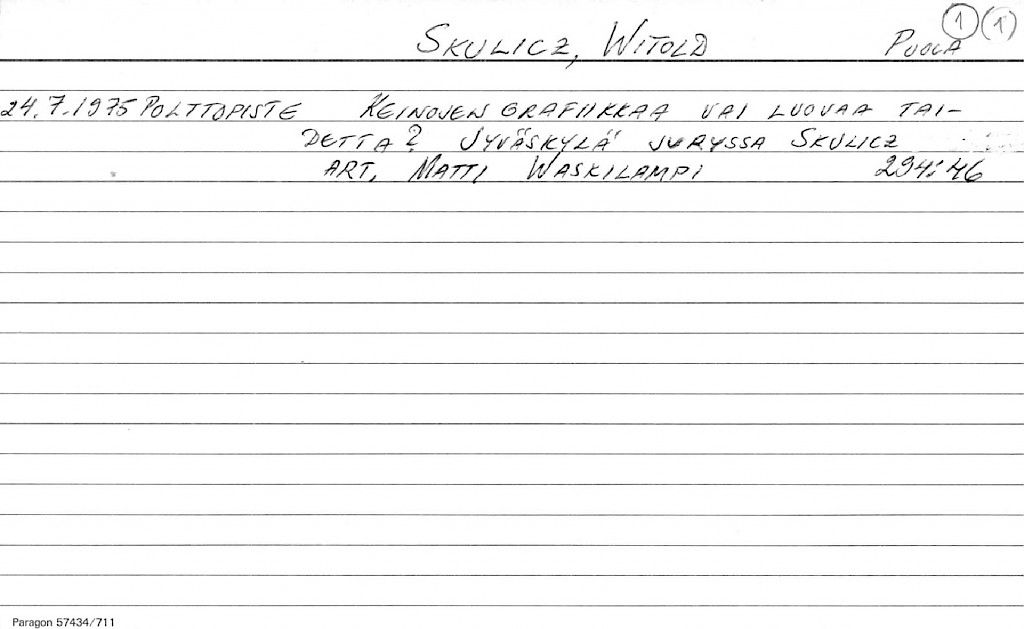 SKULICZ, WITOLD PUOLA 1 (1)
24.7.1975 POLTTOPISTE KEINOJEN GRAFIIKKAA VAI LUOVAA TAI-
DETTA? JYVÄSKYLÄ JURYSSA SKULICZ
ART. MATTI WASKILAMPI 294:46
Paragon 57434/711